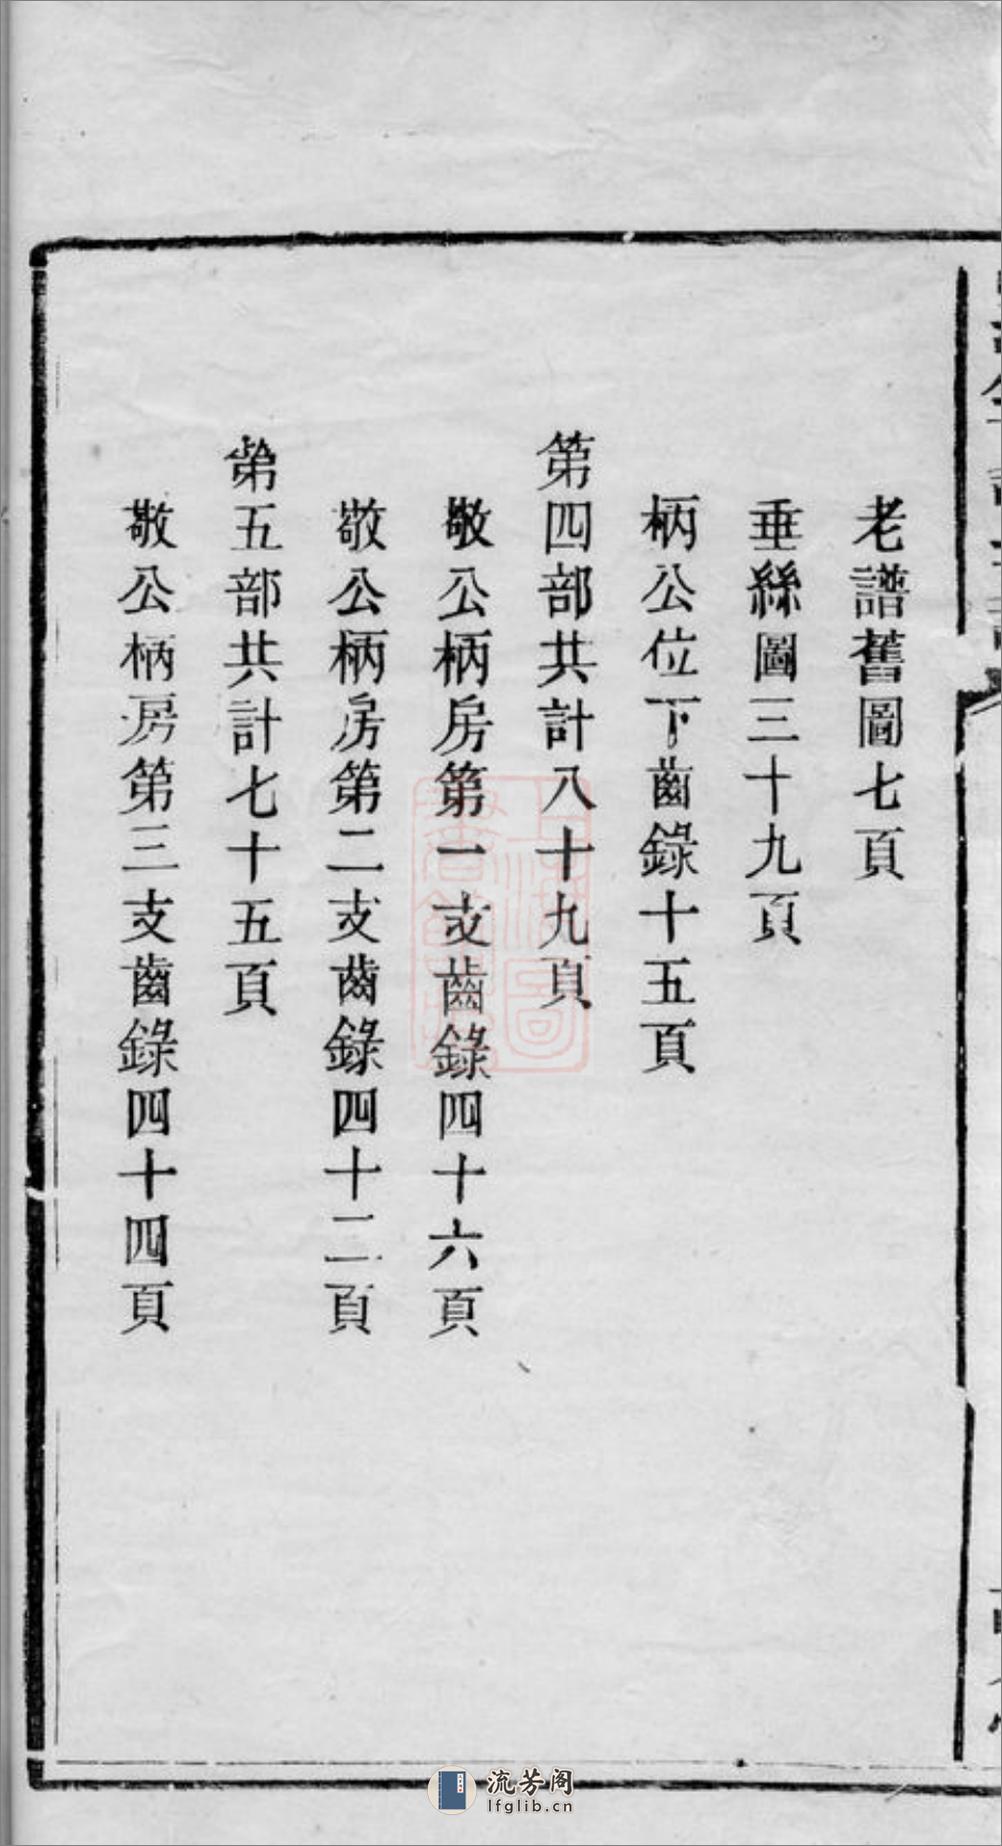 老譜舊圖七頁
垂絲圖三十九頁
柄公位下齒錄十五頁
第四部共計八十九頁
敬公柄房第一支齒錄四十六頁
敬公柄房第二支齒錄四十二頁
第五部共計七十五頁
敬公柄房第三支齒錄四十四頁
流芳阁
lfglib.cn